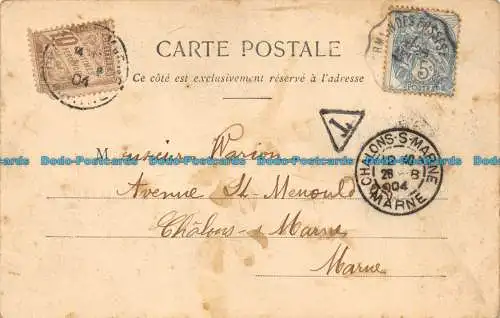 CARTE POSTALE
Ce côté est exclusivement réservé à l'adresse
T
5
POSTES
CHALONS-S-MARNE
26 - 8
04
MARNE
04
Monsieur Warion
Avenue Ste Menould
Châlons s Marne
Marne
Dodo-Postcards Dodo-Postcards Dodo-Postcards Dodo-Postcards